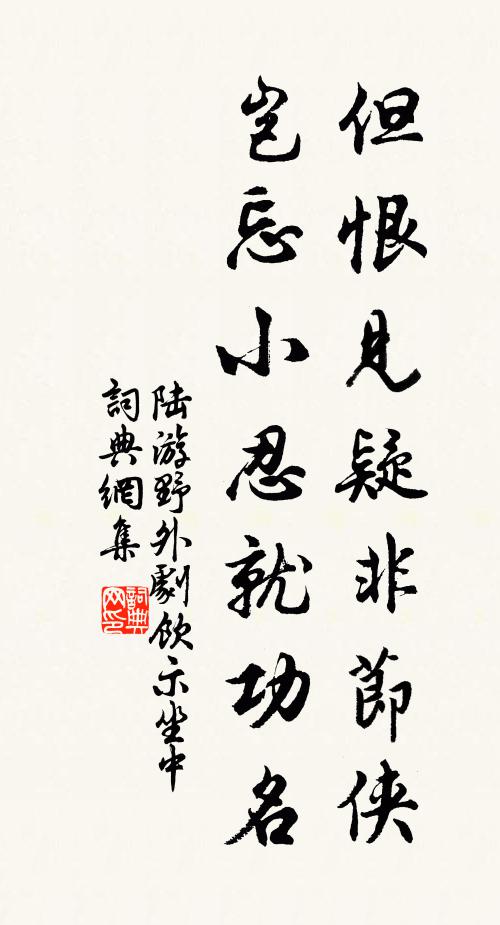 但恨見疑非節俠
豈忘小忍就功名
陆游野外劇飲示坐中
詞典網集
詞典
网印